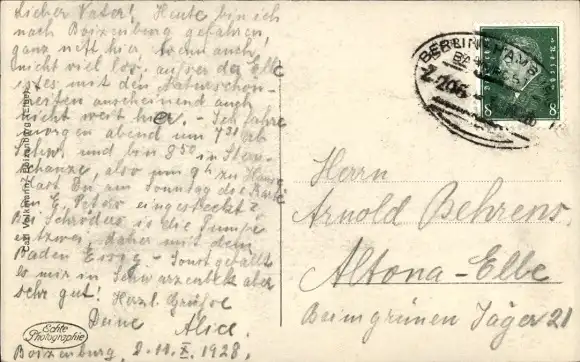 Lieber Vater! Heute bin ich
nach Boizenburg gefahren,
ganz nett hier, wenn auch
nicht viel los, außer der Elbe
ist es mit den Naturschön-
heiten anscheinend auch
nicht weit her. - Ich fahre
morgen abend um 7 31 ab
und bin 8 50 in Stern-
schanze, also um 9 h zu Hause
Hast Du am Sonntag die Karte
an E. Peters eingesteckt?
Bei Schröders is die Pumpe
entzwei, daher mit dem
Baden Essig. - Sonst gefällt
es mir in Schwarzenbek aber
sehr gut! Herzl. Grüße
Deine Alice.
Boizenburg, 10. X. 1928.
Echte
Photographie
Carl Volkmann, Boizenburg a. Elbe
BERLIN - HAMB
BAHNPOST
Z. 206
8 8
Herrn
Arnold Behrens
Altona-Elbe
Beim grünen Jäger 21